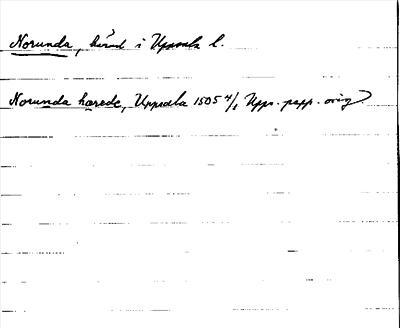 Norunda, härad i Uppsala l.
Norunda hærede, Uppsala 1505 4/1 Upps. papp. orig